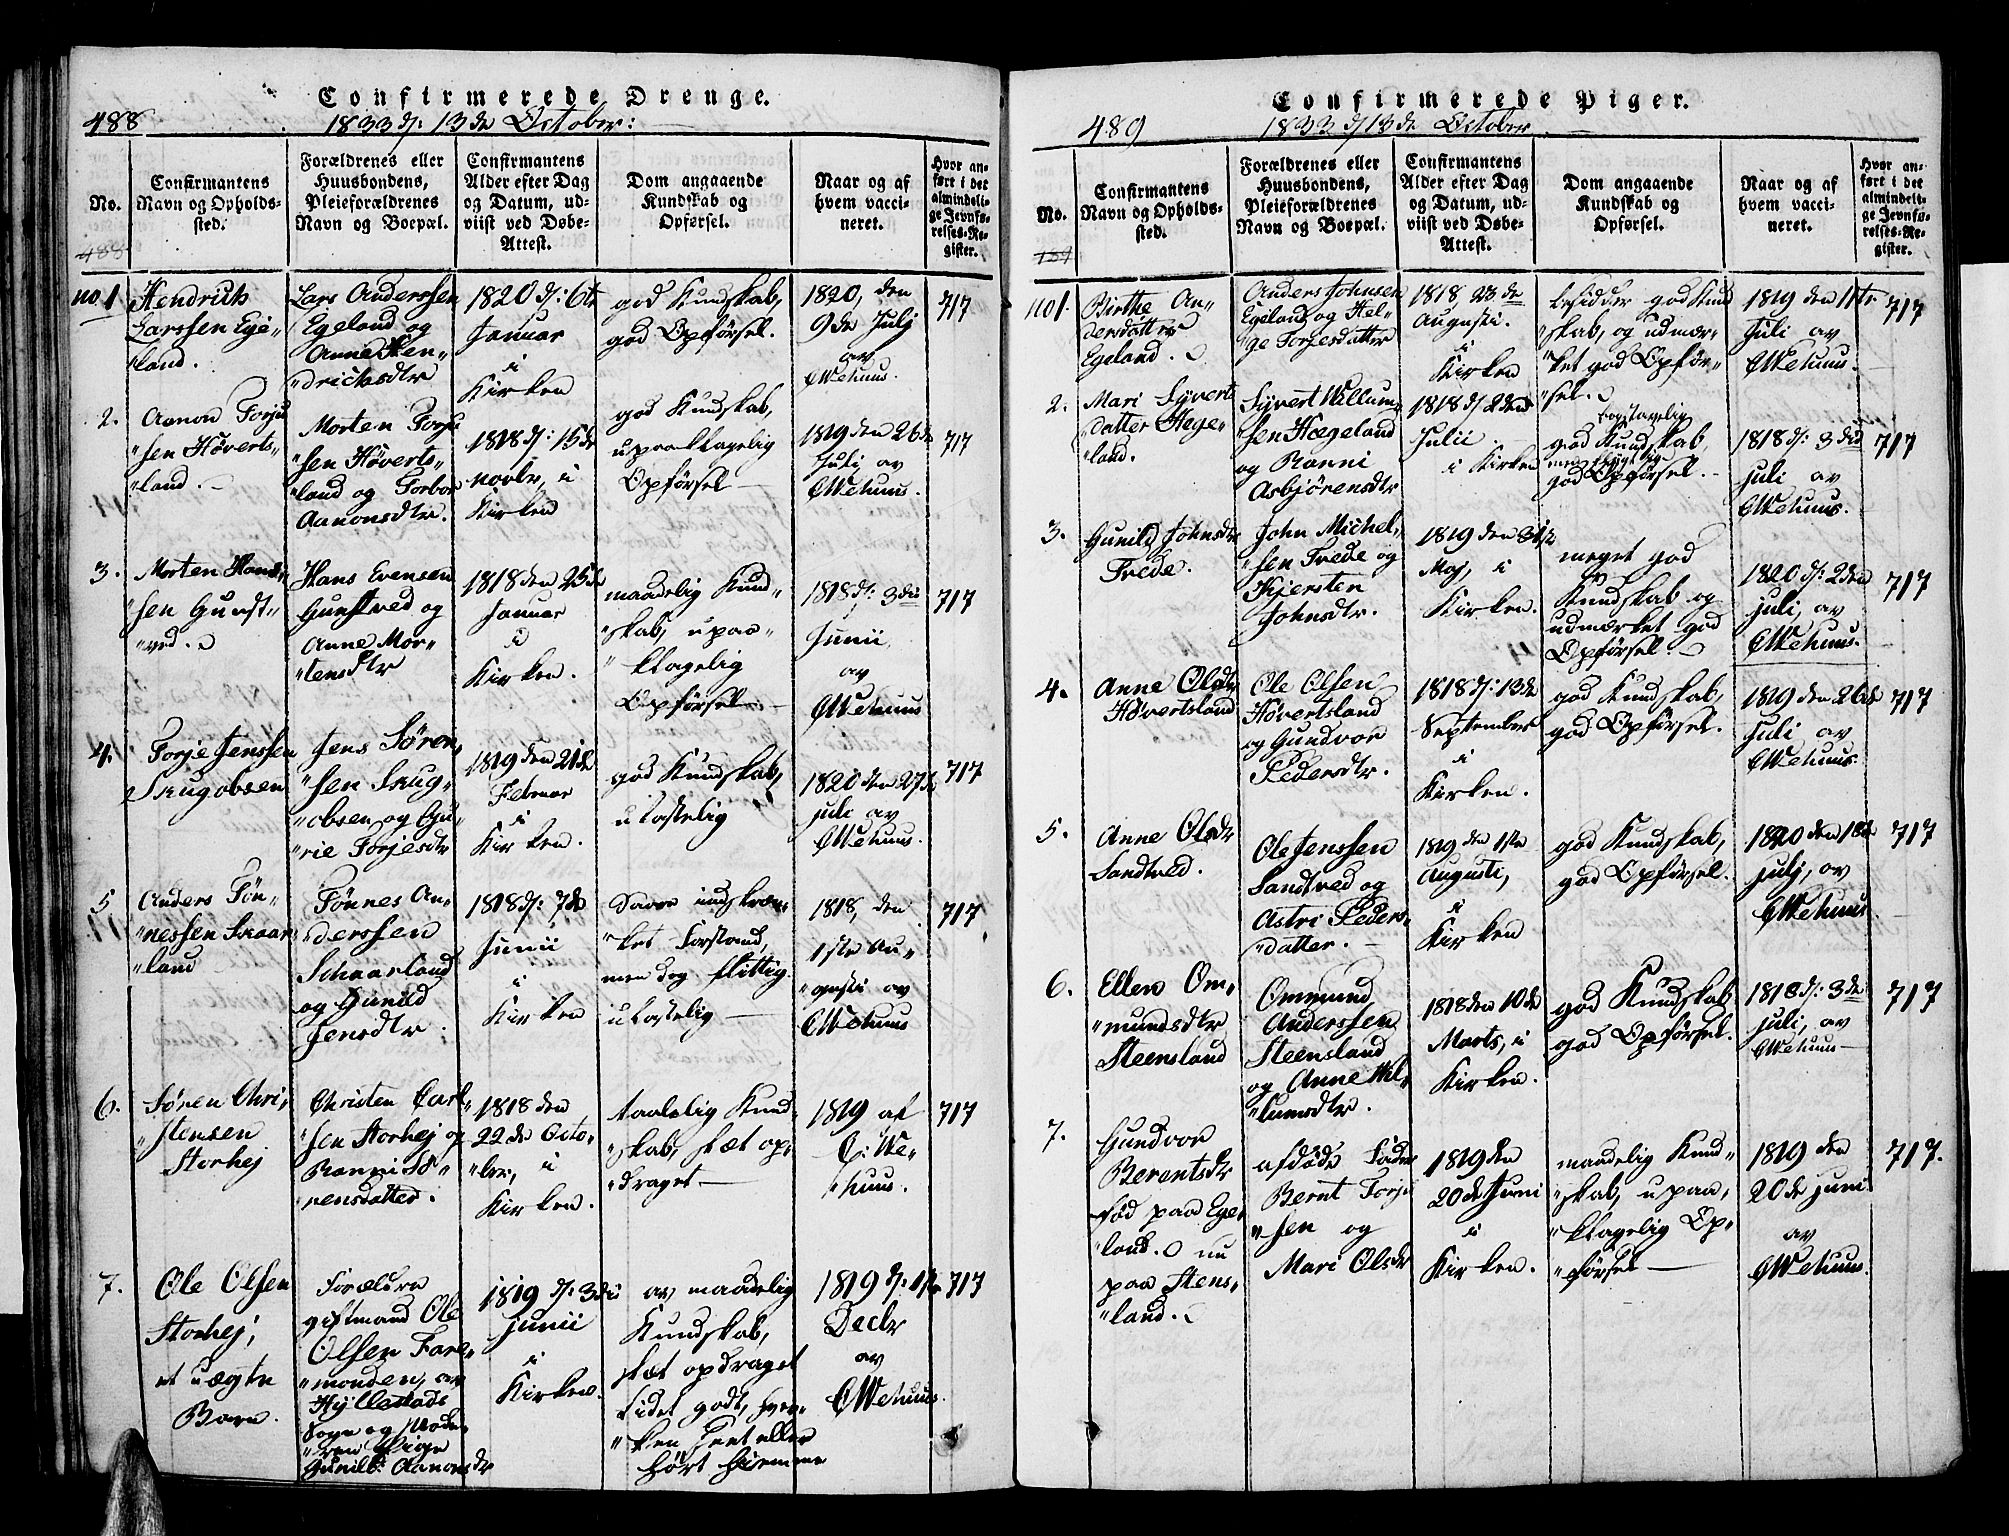 Confirmerede Drenge.
488
1833 d: 13de October:
No.
Confirmantens
Navn og Opholds-
sted.
Forældrenes eller
Huusbondens,
Pleieforældrenes
Navn og Boepæl.
Confirmantens
Alder efter Dag
og Datum, ud-
viist ved Døbe-
Attest.
Dom angaaende
Kundskab og
Opførsel.
Naar og af
hvem vacci-
neret.
Hvor an-
ført i det
almindeli-
ge Jevnfø-
relses-Re-
gister.
488
no 1
Hendrich
Larssen Ege-
land.
Lars Anderssen
Egeland og
Anne Hen-
drichsdtr
1820 d: 6te
Januar
i
Kirken
god Kundskab,
god Opførsel.
1820, den
9de Julj
av
OWehuus.
717
2.
Aanon Torju
sen Høverts-
land.
Morten Torju
sen Høverts-
land og Torbor
Aanonsdtr.
1818 d: 15de
novbr, i
Kirken
god Kundskab,
upaaklagelig
Opførsel
1819 den 26de
Juli av
OWehuus.
717
3.
Morten Hans-
sen Gunst-
ved.
Hans Evensen
Gunstved og
Anne Mor-
tensdtr
1818 den 25de
Januar
i
Kirken.
maadelig Kund-
skab, upaa-
klagelig
Opførsel
1818 d: 3die
Junii,
av
OWehuus
717
4.
Torje Jenssen
Skugobsen
Jens Søren-
sen Skug-
obsen og Gu-
rie Torjesdtr
1819 den 21de
Februar
i
Kirken.
god Kundskab,
ulastelig
1820 den 27de
juli av
OWehuus.
717
5
Anders Tøn-
nessen Skaar-
land
Tønnes An-
derssen
Schaarland
og Gunild
Jensdtr.
1818 d: 7de
Junii
i
Kirken
Saare indskræn-
ket Forstand,
men dog flittig
ulastelig
1818, den
1ste Au-
gusti av
OWehuus
717
6.
Søren Chri-
stensen
Storhej
Christen Carl-
sen Storhej og
Ranni Sø-
rensdatter.
1818 den
22de Octo-
ber, i
Kirken.
taalelig Kund-
skab, slet op-
draget
1819 af
O: We-
huus.
717
7.
Ole Olsen
Storhej,
et uægte
Barn.
Forældre
giftmand Ole
Olsen Fare-
monden, av
Hyllestads
Sogn og Mode-
ren Pige
Gunild Aanonsdr
1819 d: 3die
junii
i
Kirken.
av maadelig
Kundskab,
slet opdraget
lidet godt, hver-
ken seet eller
hørt hiemme
1819 d: 1ste
Decbr
av
OWehuus.
717
Confirmerede Piger.
489
1833 d 13de October
No.
Confirmantens
Navn og Opholds-
sted.
Forældrenes eller
Huusbondens,
Pleieforældrenes
Navn og Boepæl.
Confirmantens
Alder efter Dag
og Datum, ud-
viist ved Døbe-
Attest.
Dom angaaende
Kundskab og
Opførsel.
Naar og af
hvem vacci-
neret.
Hvor an-
ført i det
almindeli-
ge Jevnfø-
relses-Re-
gister.
489
no 1.
Birthe An-
dersdatter
Egeland.
Anders Johnsen
Egeland og Hel-
ge Torjesdatter
1818 23de
Augusti.
i
Kirken
besidder god Kund
skab, og udmær-
ket god Opfør-
sel.
1819 den 11te
Juli av
OWehuus.
717
2.
Mari Syverts
datter Hege-
land.
Syvert Willum-
sen Hægeland
og Ranni
Asbjørensdtr
1818 d 2den
Julii
i Kirken
bogstavelig
god Kundskab,
god Opførsel.
1818 d: 3die
juli av
OWehuus.
717
3.
Gunild Johnsdr
Trede.
John Michel-
sen Trede og
Kjersten
Johnsdtr.
1819 den 31te
Maj, i
Kirken.
meget god
Kundskab og
udmærket god
Opførsel.
1820 d: 2den
juli, av
OWehuus.
717
4.
Anne Olsdr
Høvertsland
Ole Olsen
Høvertsland
og Gundvor
Pedersdtr.
1818 d: 13de
September
i
Kirken.
god Kundskab,
god Opførsel.
1819 den 26de
juli av
OWehuus.
717
5.
Anne Olsdr
Sandtved.
Ole Jenssen
Sandtved og
Astri Peders-
datter.
1819 den 1ste
Augusti,
i
Kirken
god Kundskab,
god Opførsel.
1820 den 18de
julj, av
OWehuus
717
6.
Ellen Om-
mundsdtr
Steensland
Ommund
Anderssen
Steensland
og Anne Wil-
lumsdtr.
1818 den 10de
Marts, i
Kirken.
god Kundskab
god Opførsel.
1818 d: 3die
juli, av
OWehuus
717
7.
Gundvor
Berentsdr
fød paa Ege-
land. nu
paa Stens-
land.
afdøde Fader
Bernt Torje
sen og
Mari Olsdr
1819 den
20de Juni
i
Kirken.
maadelig Kund-
skab, upaa-
klagelig Op-
førsel
1819 den
20de juni
av
OWehuus.
717.